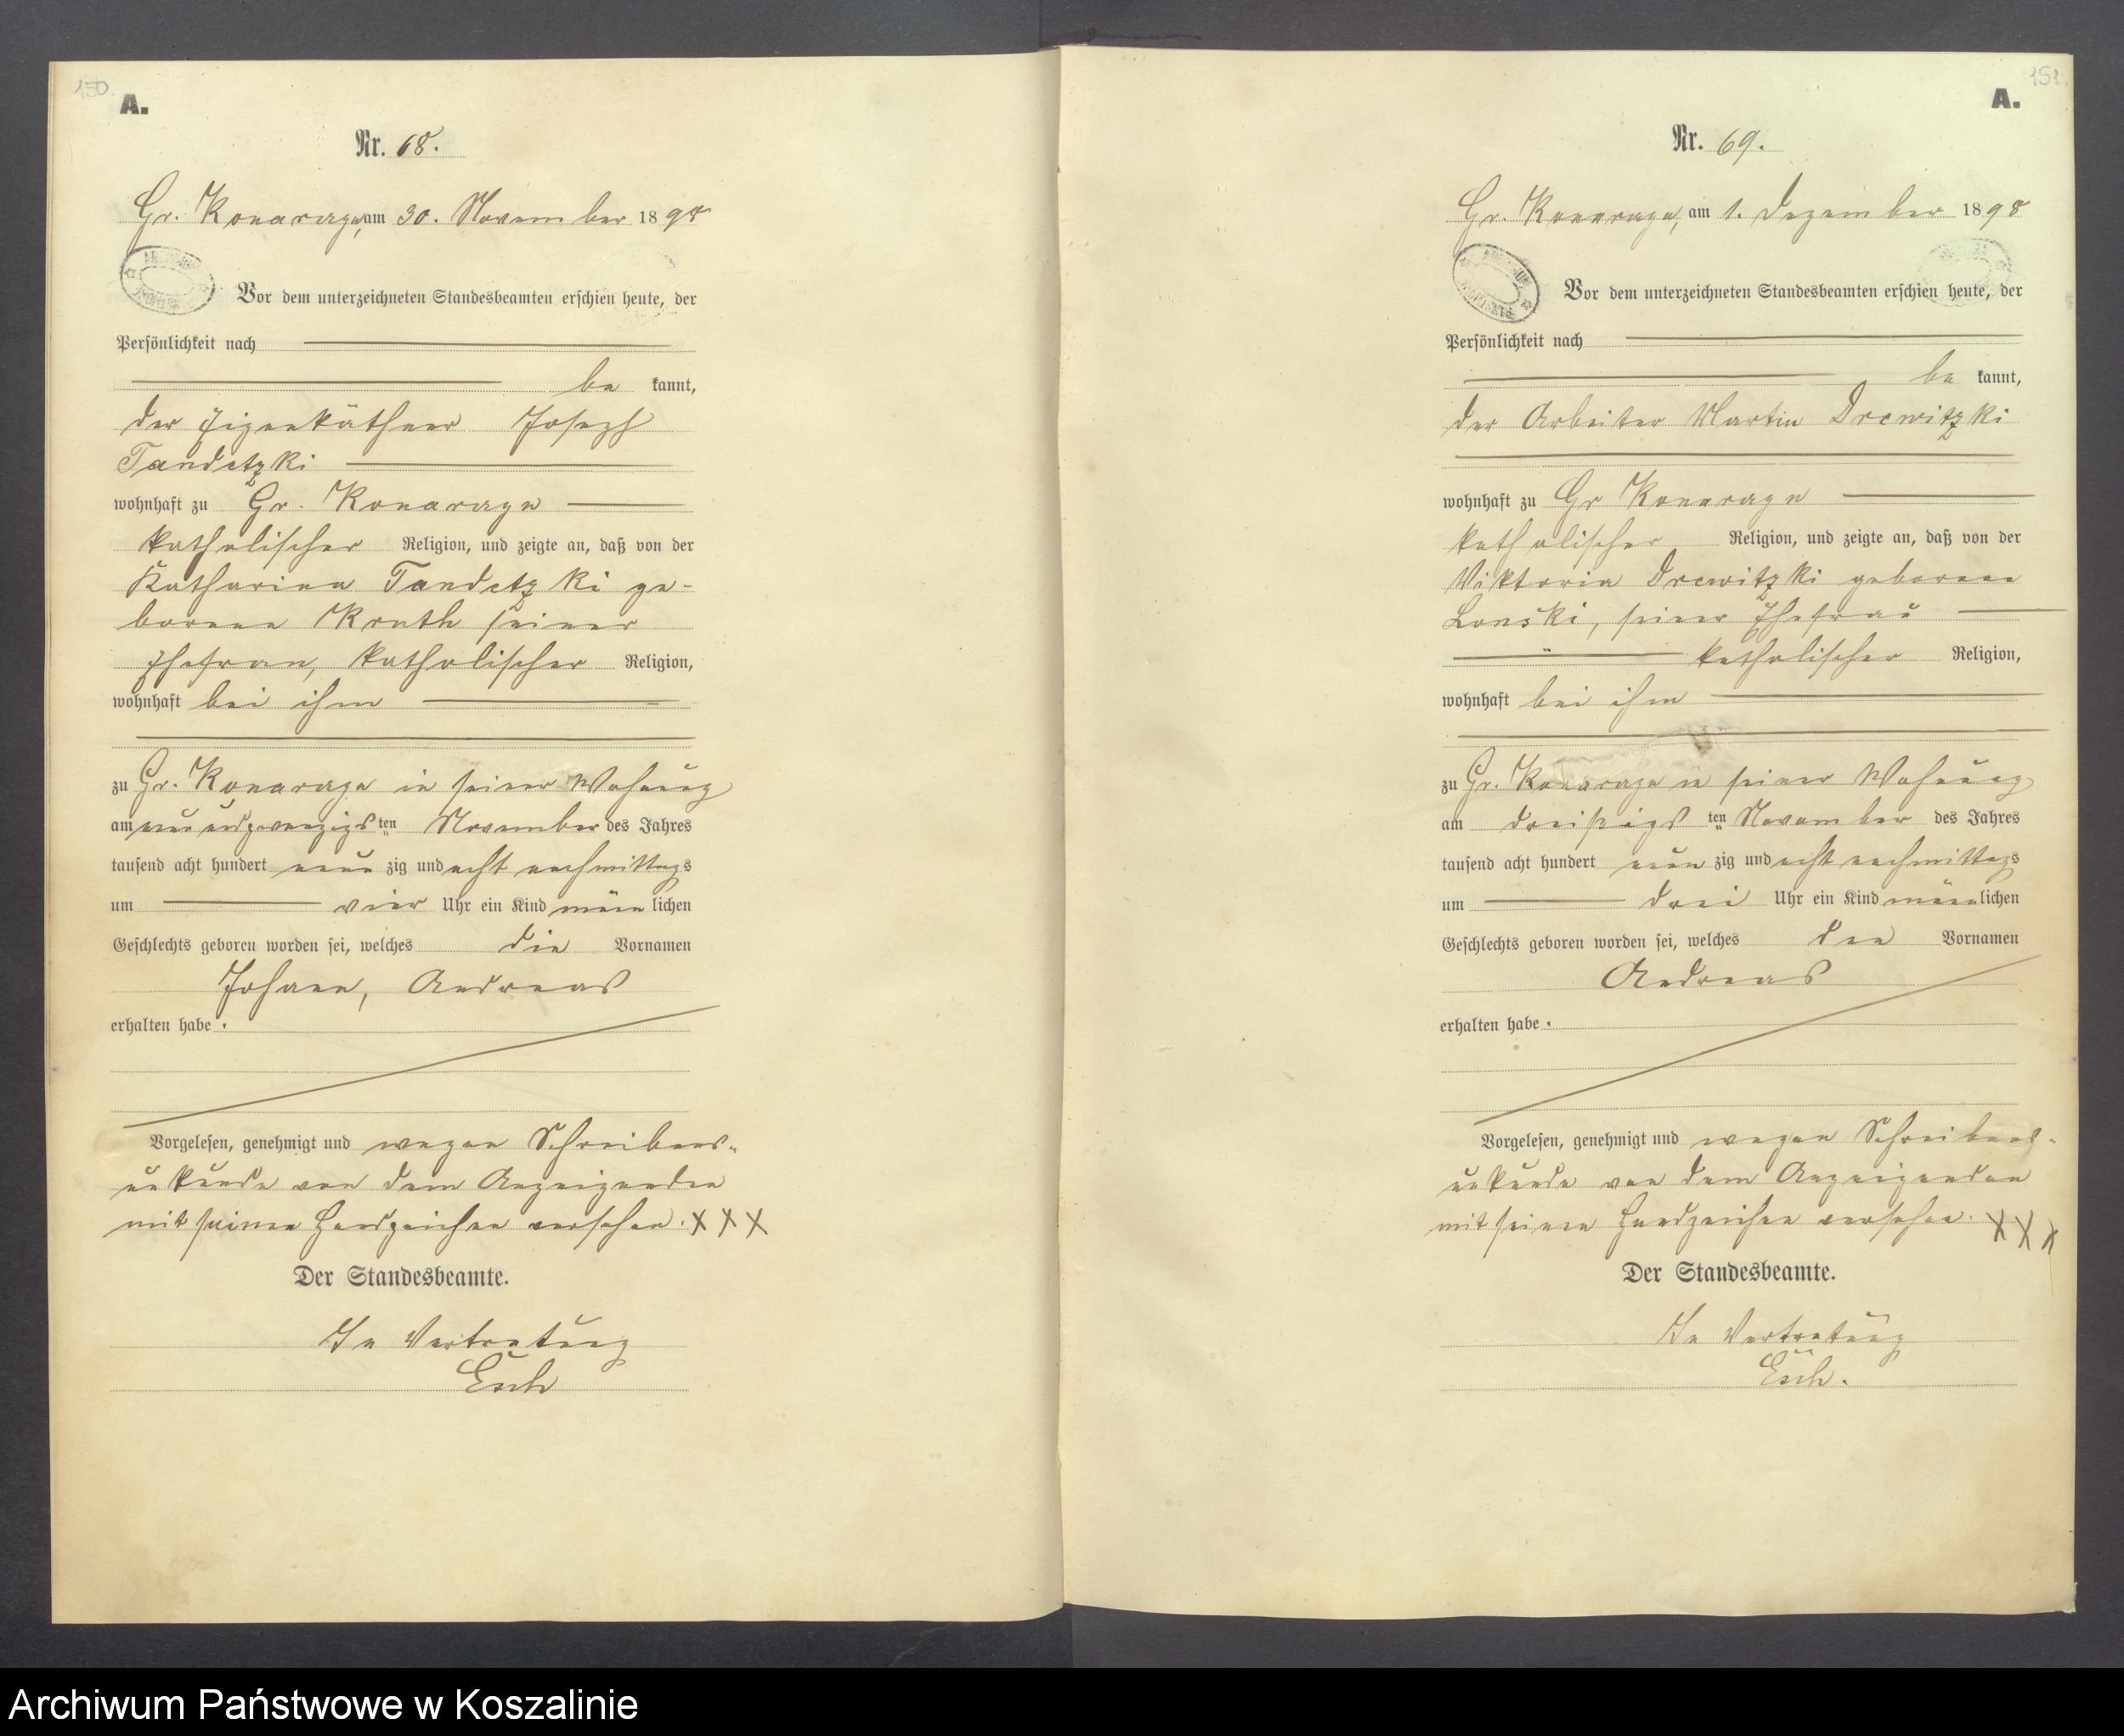 150.
A.
Nr. 68.
Gr. Konarczyn, am 30. November 1898
Vor dem unterzeichneten Standesbeamten erschien heute, der
Persönlichkeit nach
be kannt,
der Eigenkäthner Joseph
Tandetzki
wohnhaft zu Gr. Konarczyn
katholischer Religion, und zeigte an, daß von der
Katharina Tandetzki ge-
borene Kruth seiner
Ehefrau, katholischer Religion,
wohnhaft bei ihm
zu Gr. Konarczyn in seiner Wohnung
am neunundzwanzigsten November des Jahres
tausend acht hundert neun zig und acht nachmittags
um vier Uhr ein Kind männ lichen
Geschlechts geboren worden sei, welches die Vornamen
Johann, Andreas
erhalten habe.
Vorgelesen, genehmigt und wegen Schreibens-
unkunde von dem Anzeigenden
mit seinen Handzeichen versehen. XXX
Der Standesbeamte.
In Vertretung
151.
A.
Nr. 69.
Gr. Konarczyn, am 1. Dezember 1898
Vor dem unterzeichneten Standesbeamten erschien heute, der
Persönlichkeit nach
be kannt,
der Arbeiter Martin Drewitzki
wohnhaft zu Gr Konarczyn
katholischer Religion, und zeigte an, daß von der
Viktoria Drewitzki geborene
Lonski, seiner Ehefrau
katholischer Religion,
wohnhaft bei ihm
zu Gr. Konarczyn in seiner Wohnung
am dreißigsten November des Jahres
tausend acht hundert neun zig und acht nachmittags
um drei Uhr ein Kind männlichen
Geschlechts geboren worden sei, welches den Vornamen
Andreas
erhalten habe.
Vorgelesen, genehmigt und wegen Schreibens-
unkunde von dem Anzeigenden
mit seinen Handzeichen versehen. XXX
Der Standesbeamte.
In Vertretung
Archiwum Państwowe w Koszalinie